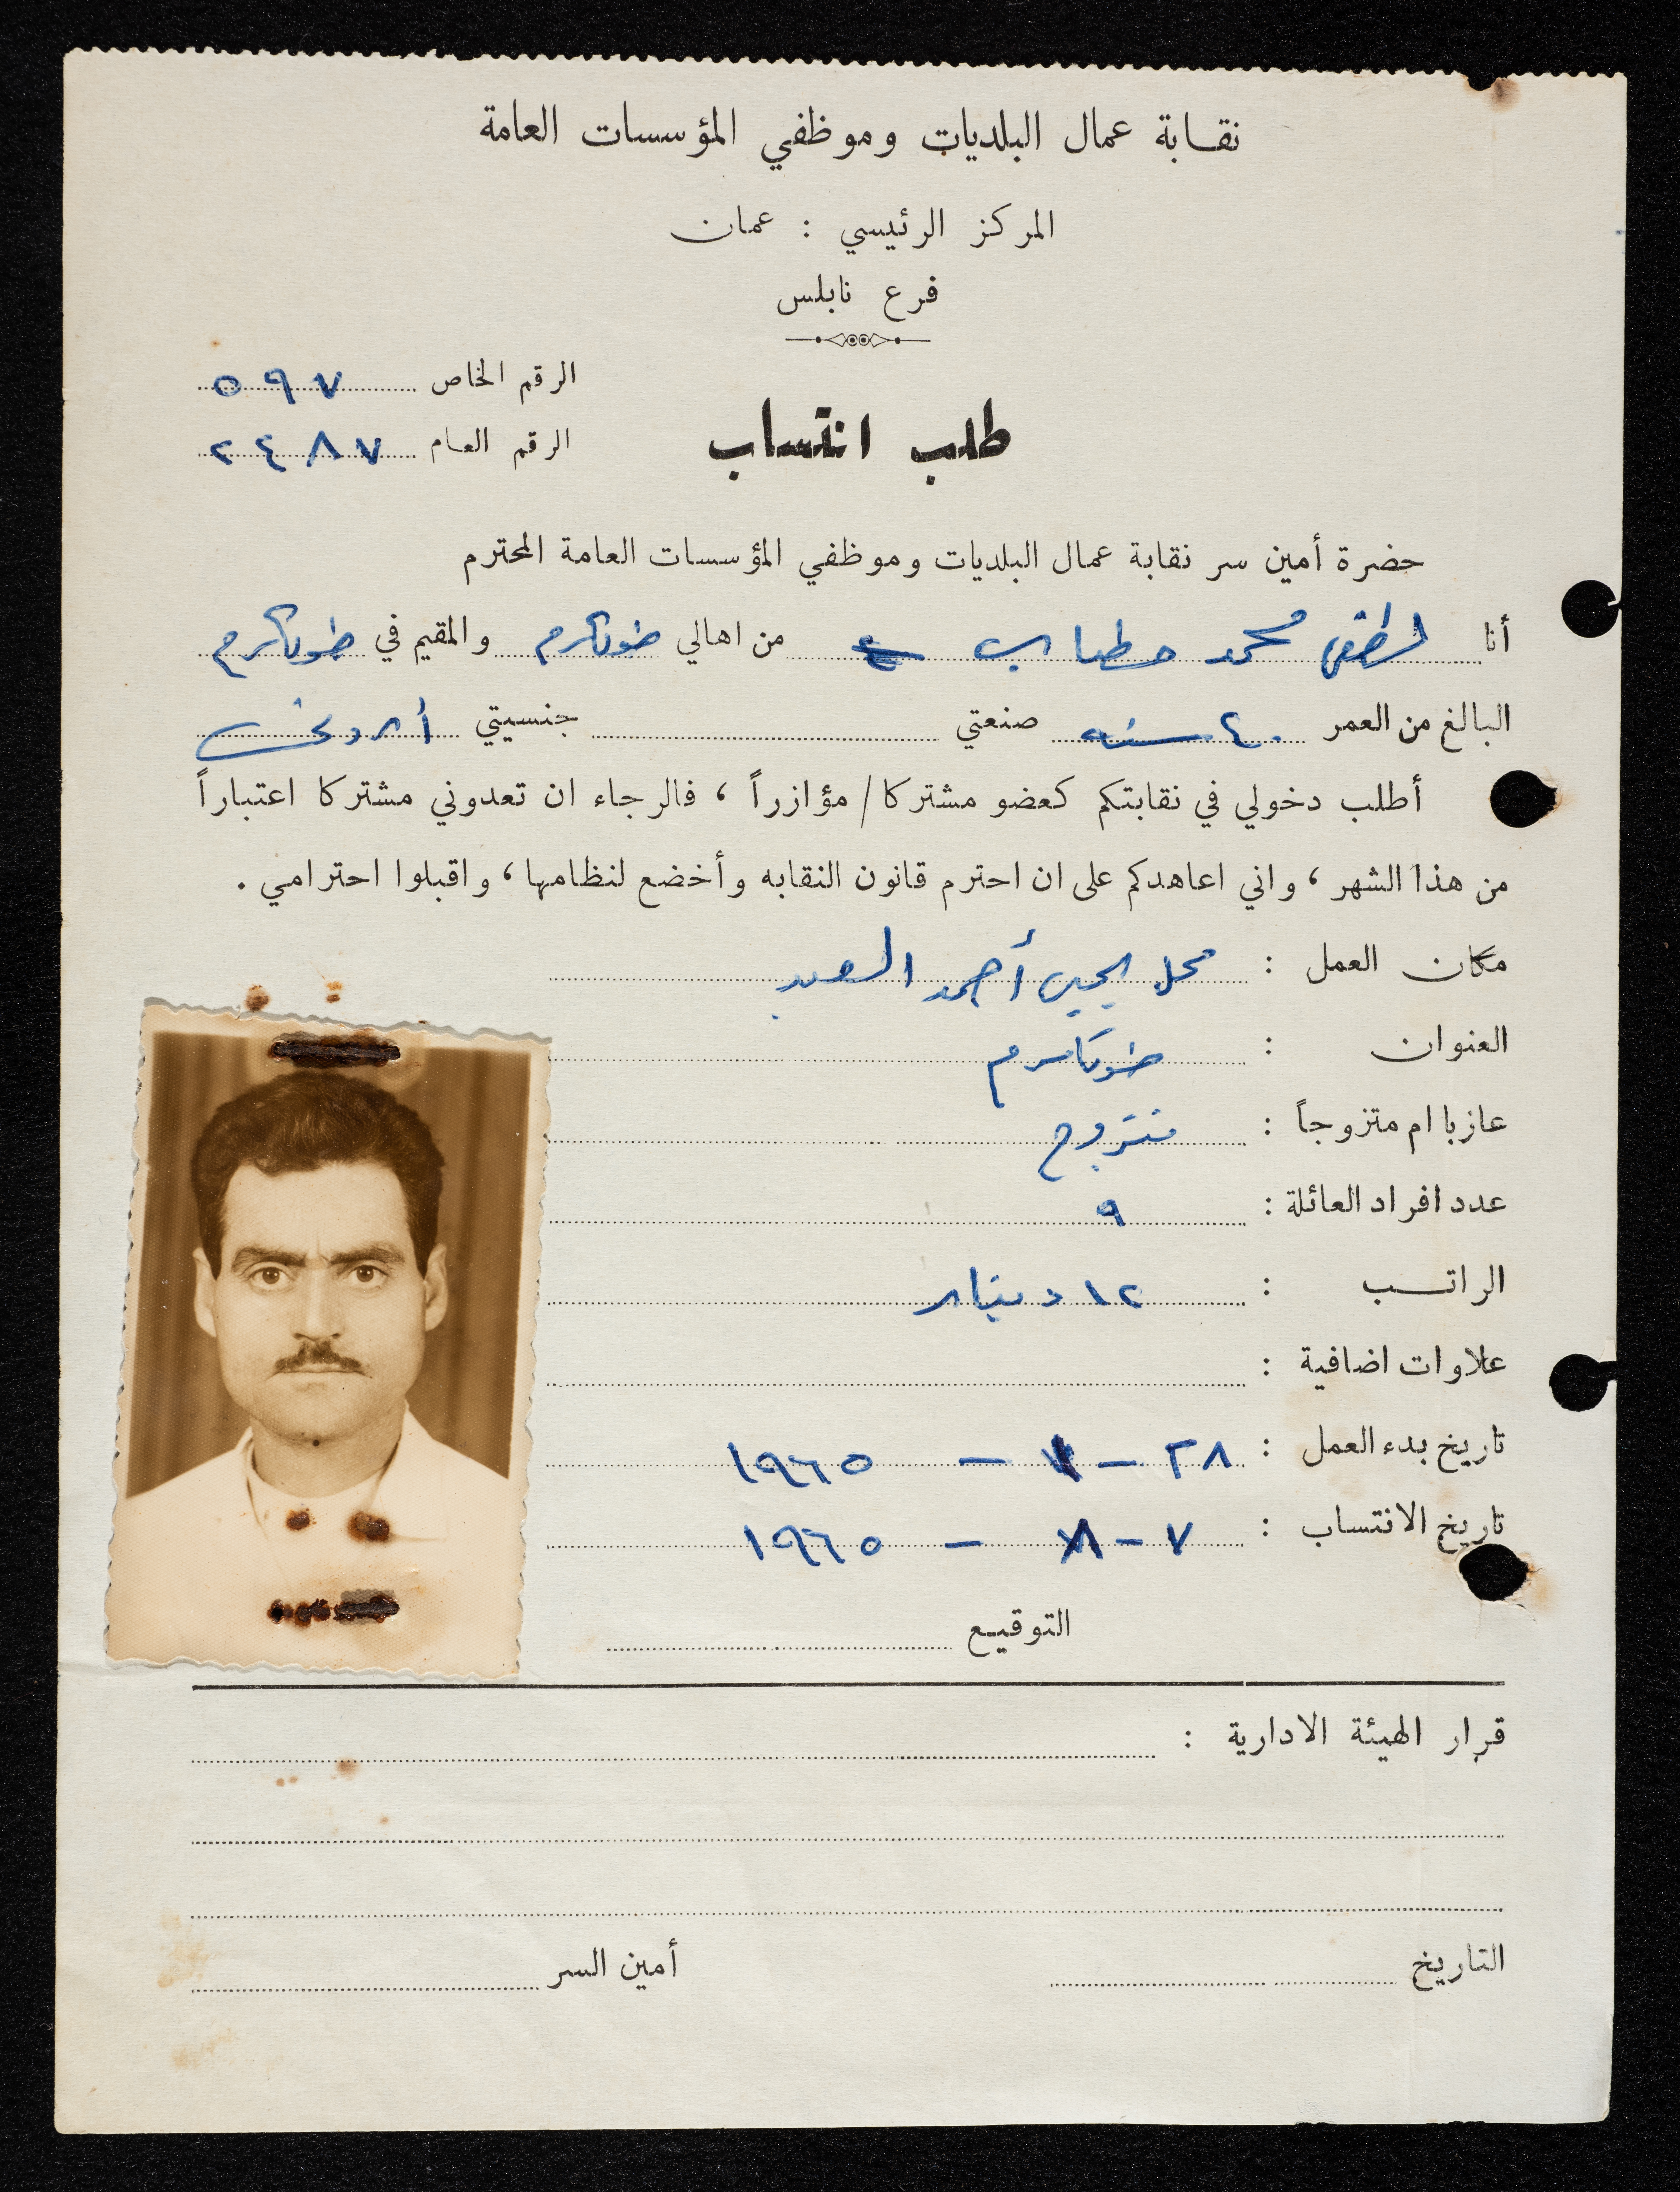 نقابة عمال البلديات وموظفي المؤسسات العامة
المركز الرئيسي : عمان
فرع نابلس
الرقم الخاص ٥٩٧
الرقم العام ٢٤٨٧
طلب انتساب
حضرة أمين سر نقابة عمال البلديات وموظفي المؤسسات العامة المحترم
أنا لطفي محمد حطاب من اهالي طولكرم والمقيم في طولكرم
البالغ من العمر ٤٠ سنه صنعتي جنسيتي أردني
أطلب دخولي في نقابتكم كعضو مشتركا / مؤازراً ، فالرجاء ان تعدوني مشتركا اعتباراً
من هذا الشهر ، واني اعاهدكم على ان احترم قانون النقابه وأخضع لنظامها ، واقبلوا احترامي .
مكان العمل : محل أحمد
العنوان : طولكرم
عازبا ام متزوجاً : متزوج
عدد افراد العائلة : ٩
الراتب : ١٢ دينار
علاوات اضافية :
تاريخ بدء العمل : ٢٨ - ٧ - ١٩٦٥
تاريخ الانتساب : ٧ - ٨ - ١٩٦٥
التوقيع
قرار الهيئة الادارية :
التاريخ أمين السر